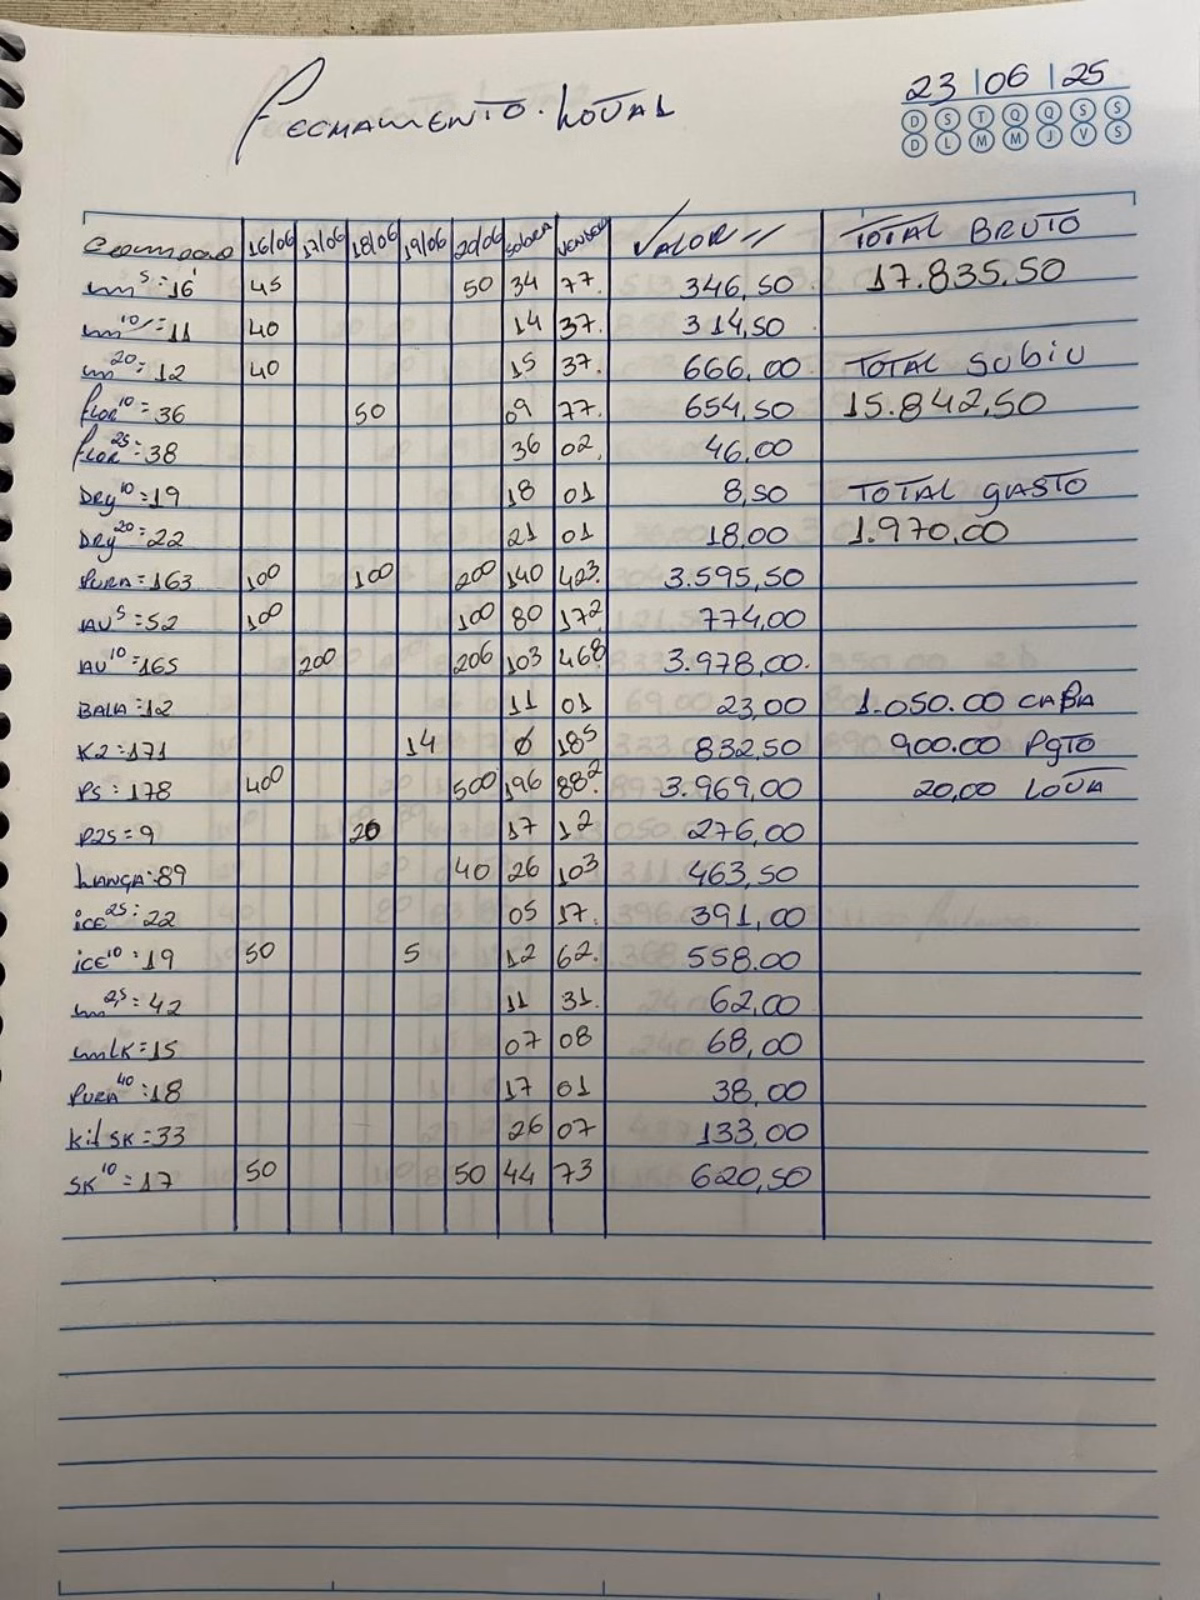 23/06/25
FECHAMENTO. LOVAL
D S T Q Q S S
D L M M J V S
16/06 17/06 18/06 19/06 20/06 SOBRA VENDEU VALOR // TOTAL BRUTO
m5=16 45 50 34 77. 346,50 17.835,50
m10=11 40 14 37. 314,50
m20=12 40 15 37. 666,00 TOTAL SUBIU
FLOR10=36 50 09 77. 654,50 15.842,50
FLOR25=38 36 02. 46,00
DRY10=19 18 01 8,50 TOTAL GASTO
DRY20=22 21 01 18,00 1.970,00
PURA=163 100 100 200 140 423. 3.595,50
AU5=52 100 100 80 172 774,00
AU10=165 200 206 103 468 3.978,00.
BALA=12 11 01 23,00 1.050.00 CABA
K2=171 14 ø 185 832,50 900.00 PGTO
P5=178 400 500 196 882. 3.969,00 20,00 LOVA
P25=9 20 17 12 276,00
LANÇA:89 40 26 103 463,50
iCE25:22 05 17. 391,00
iCE10:19 50 5 12 62. 558.00
m2,5=42 11 31. 62,00
mLK=15 07 08 68,00
PURA40:18 17 01 38,00
Kit SK=33 26 07 133,00
SK10=17 50 50 44 73 620,50